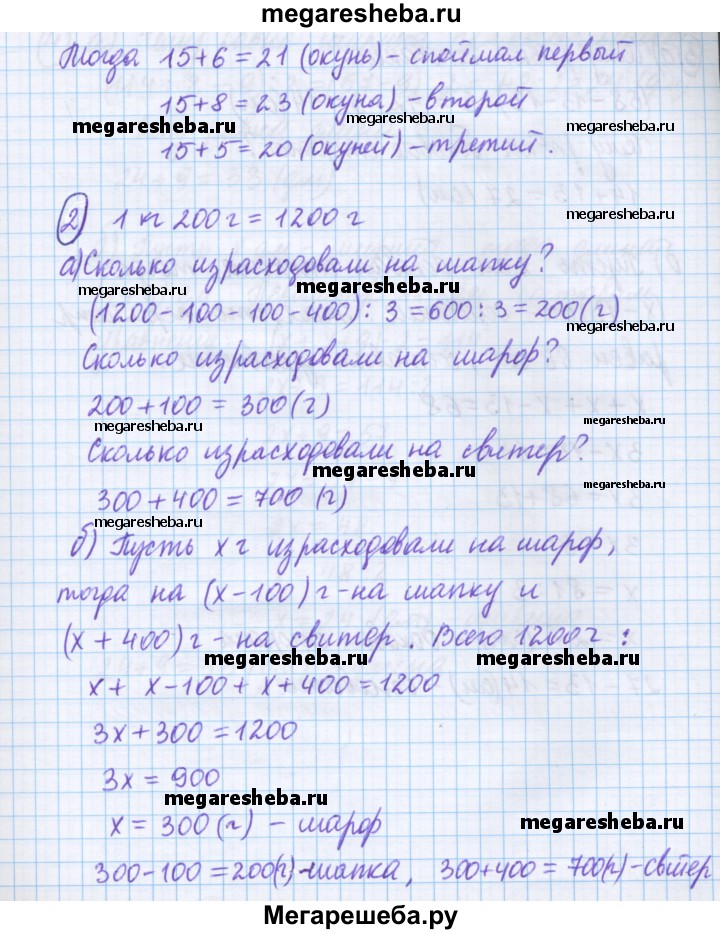 megaresheba.ru
Тогда 15+6=21 (окунь) - споймал первый
15+8=23 (окуна) - второй
megaresheba.ru
megaresheba.ru
megaresheba.ru
15+5=20 (окуней) - третий.
megaresheba.ru
2) 1 кг 200 г = 1200 г
а) Сколько израсходовали на шапку?
megaresheba.ru
megaresheba.ru
(1200-100-100-400) : 3 = 600 : 3 = 200 (г)
megaresheba.ru
Сколько израсходовали на шарф?
200+100 = 300 (г)
megaresheba.ru
megaresheba.ru
Сколько израсходовали на свитер?
megaresheba.ru
megaresheba.ru
300+400 = 700 (г)
megaresheba.ru
б) Пусть x г израсходовали на шарф,
тогда на (x-100) г - на шапку и
(x+400) г - на свитер. Всего 1200 г :
megaresheba.ru
megaresheba.ru
x + x-100 + x+400 = 1200
3x+300=1200
3x = 900
megaresheba.ru
x = 300 (г) - шарф
megaresheba.ru
300-100=200(г)-шапка, 300+400=700(г)-свитер
Мегарешеба.ру